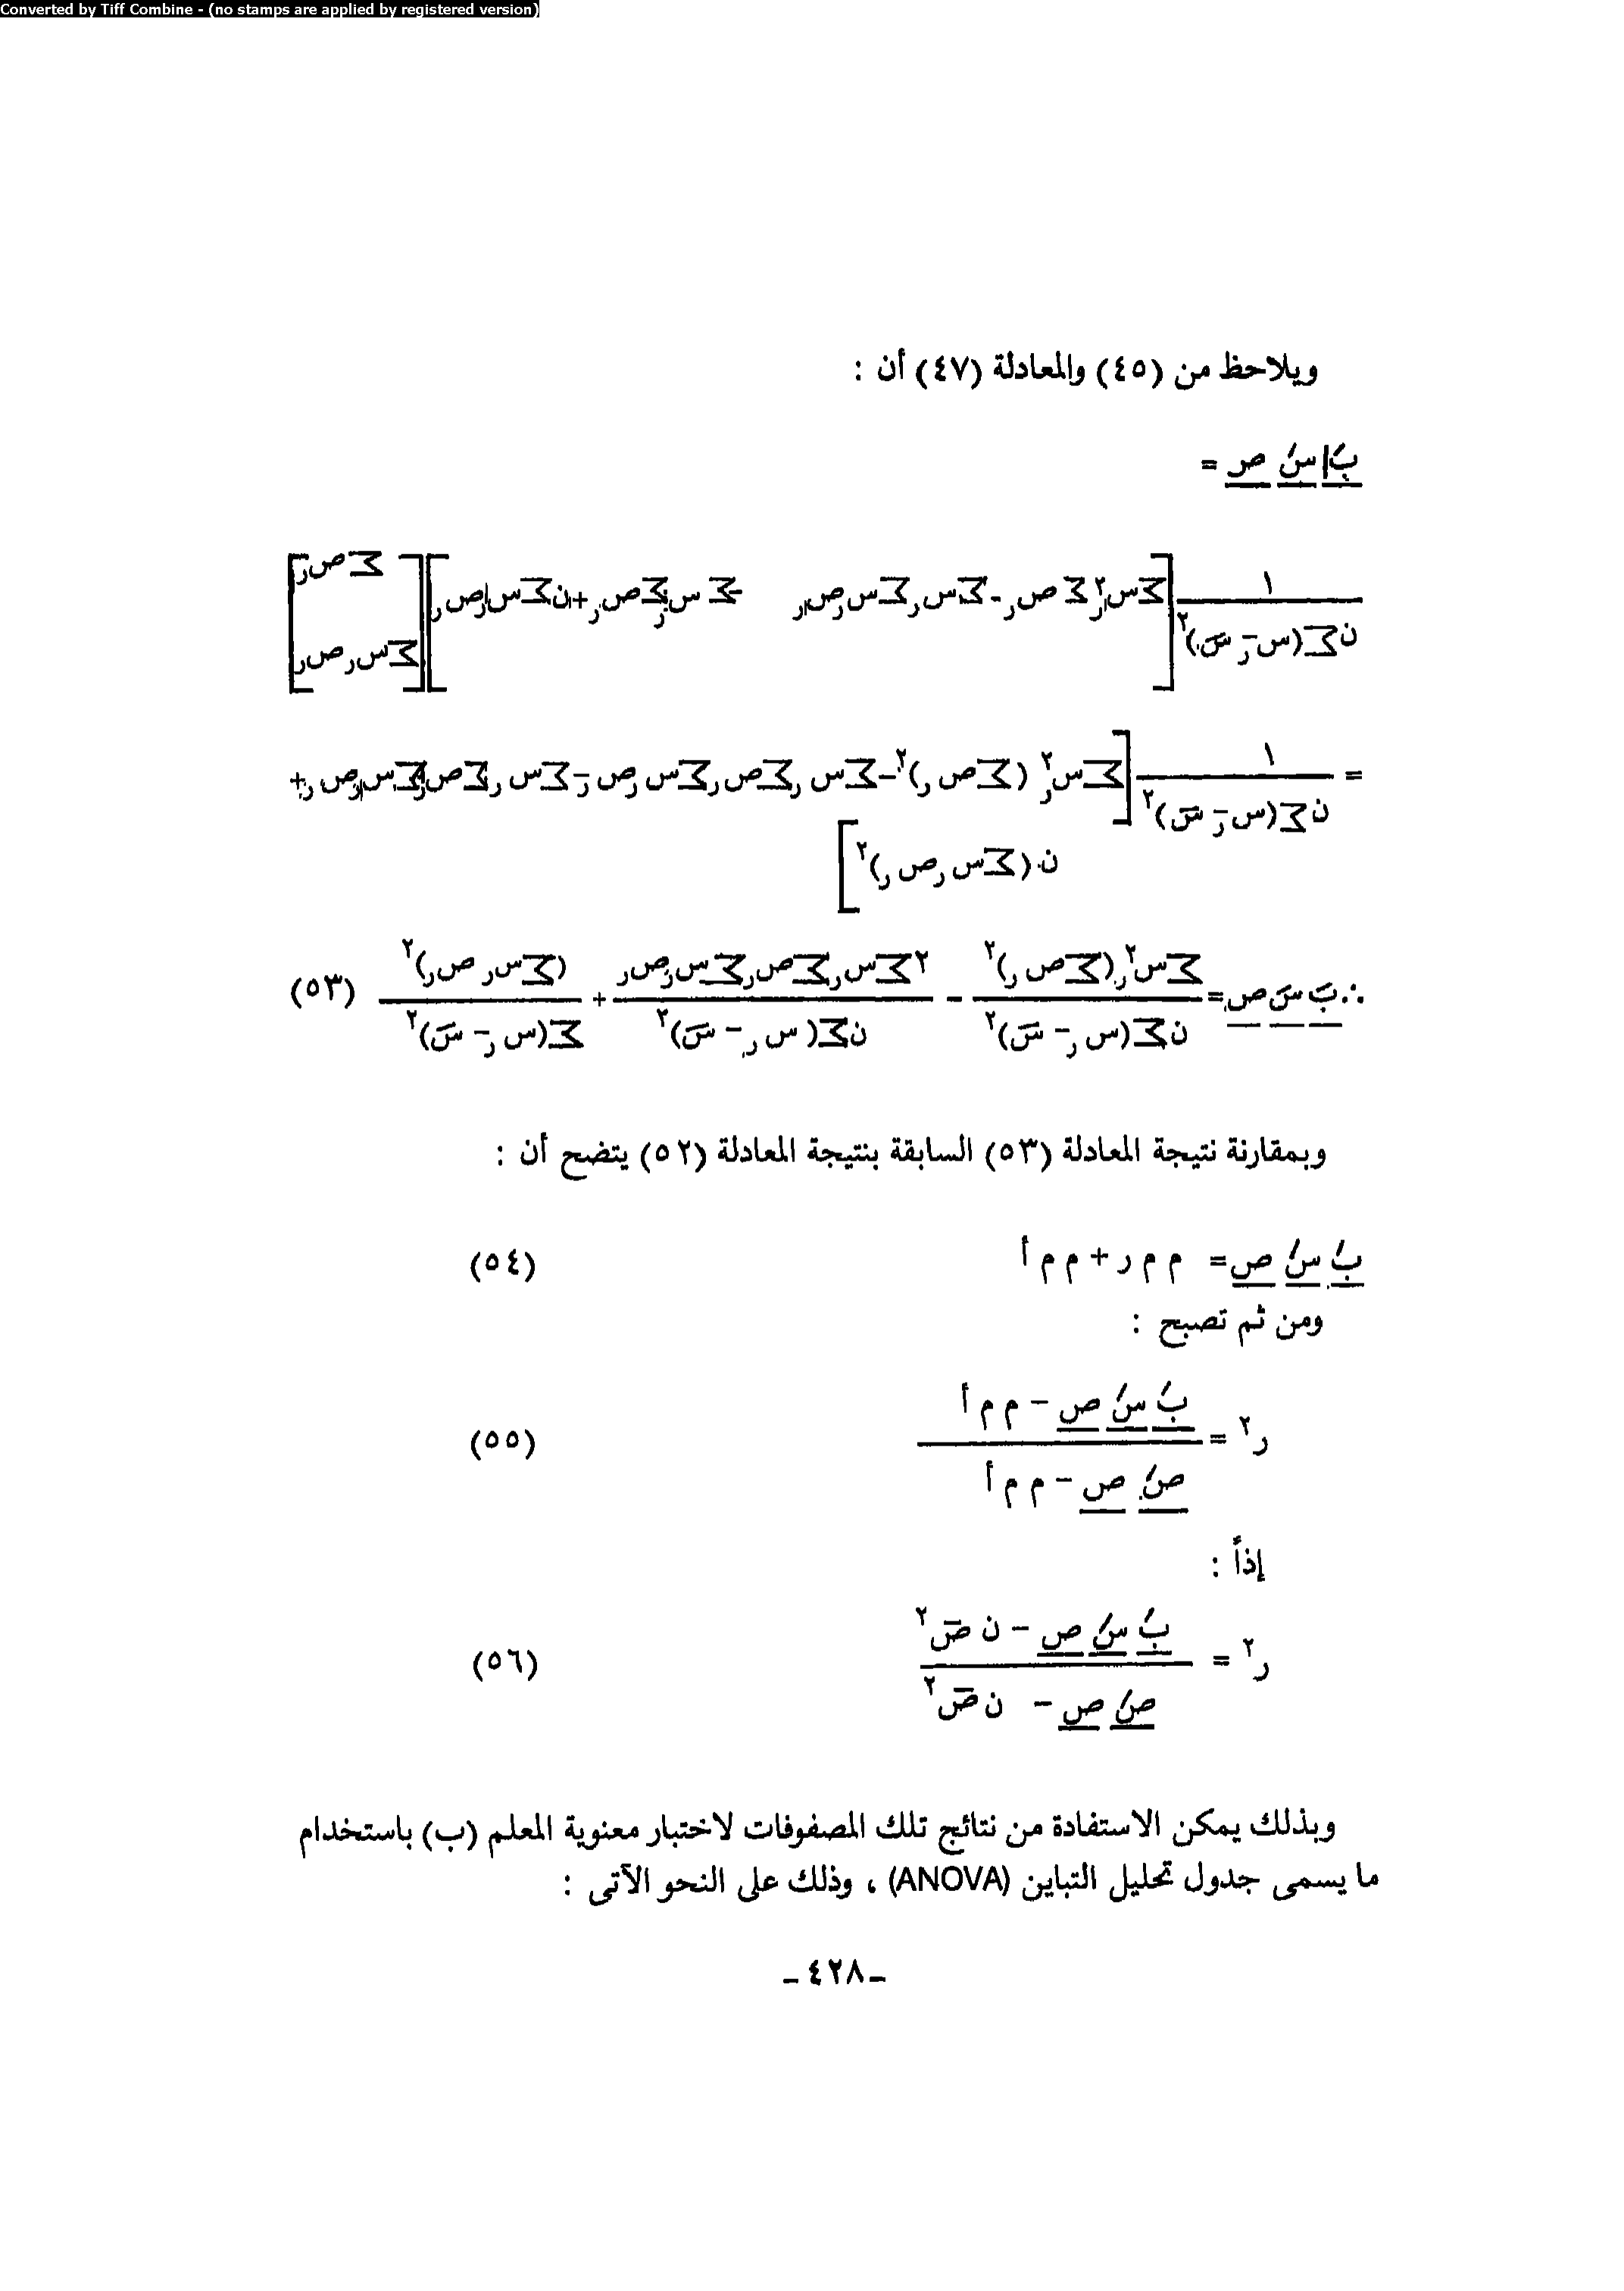 Converted by Tiff Combine - (no stamps are applied by registered version)
ويلاحظ من (٤٥) والمعادلة (٤٧) أن :
بَ سَ ص =
١ / ن Σ(س ر - سَ)٢ [Σس ر٢ Σ ص ر - Σس ر Σس ر ص ر     - Σ س ر Σص ر + ن Σس ر ص ر] [Σ ص ر
Σس ر ص ر]
= ١ / ن Σ(س ر - سَ)٢ [Σس ر٢ (Σص ر)٢ - Σس ر Σص ر Σس ر ص ر - Σس ر Σص ر Σس ر ص ر +
ن (Σس ر ص ر)٢]
∴ بَ سَ ص = Σس٢ ر (Σص ر)٢ / ن Σ(س ر - سَ)٢ - ٢ Σس ر Σص ر Σس ر ص ر / ن Σ(س ر - سَ)٢ + (Σس ر ص ر)٢ / Σ(س ر - سَ)٢ (٥٣)
وبمقارنة نتيجة المعادلة (٥٣) السابقة بنتيجة المعادلة (٥٢) يتضح أن :
بَ سَ ص = م م ر + م م أ (٥٤)
ومن ثم تصبح :
ر٢ = بَ سَ ص - م م أ / صَ ص - م م أ (٥٥)
إذاً :
ر٢ = بَ سَ ص - ن صَ٢ / صَ ص - ن صَ٢ (٥٦)
وبذلك يمكن الاستفادة من نتائج تلك المصفوفات لاختبار معنوية المعلم (ب) باستخدام
ما يسمى جدول تحليل التباين (ANOVA) ، وذلك على النحو الآتى :
- ٤٢٨ -